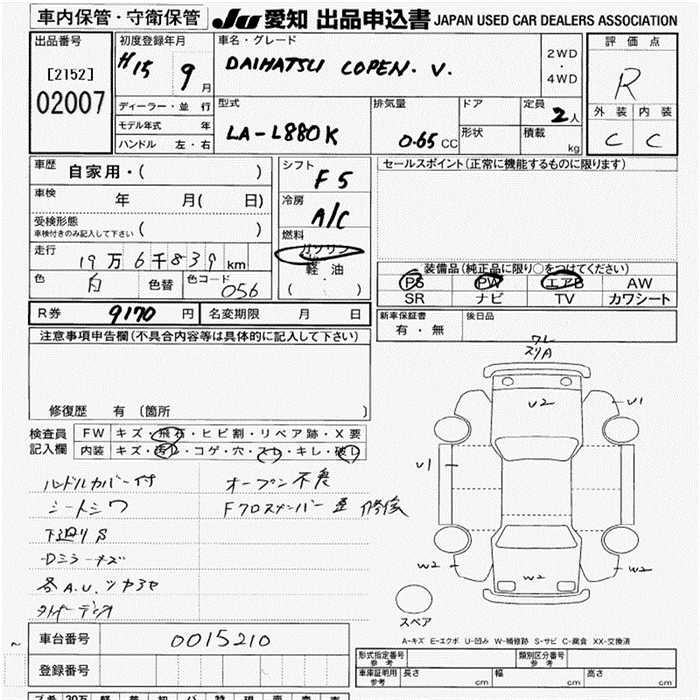 車内保管・守衛保管 JU 愛知 出品申込書 JAPAN USED CAR DEALERS ASSOCIATION
出品番号
[2152]
02007
初度登録年月
H15 9月
ディーラー・並 行
モデル年式 年
ハンドル 左・右
車名・グレード
DAIHATSU COPEN. V.
2WD
・
4WD
型式
LA-L880K
排気量
0.65 CC
ドア
形状
定員
2人
積載
kg
評価点
R
外装 内装
C C
車歴 自家用・( )
車検 年 月( 日)
受検形態
車検付きのみ記入して下さい ( )
走行 19万6千839km
色 白 色替 色コード 056
シフト
F5
冷房
A/C
燃料
ガソリン
軽油
( )
セールスポイント(正常に機能するものに限ります)
装備品(純正品に限り○をつけてください)
PS PW エアB AW
SR ナビ TV カワシート
R券 9170 円 名変期限 月 日
新車保証書
有・無
後日品
注意事項申告欄(不具合内容等は具体的に記入して下さい)
修復歴 有 (箇所 )
検査員
記入欄
FW キズ・飛石・ヒビ割・リペア跡・X要
内装 キズ・汚レ・コゲ・穴・スレ・キレ・破レ
ハンドルカバー付
シートシワ
下廻りS
Dミラーキズ
各A.U.
オープン不良
Fクロスメンバー 修復
ワレ
スリA
U2
U1
U1
W2
W2
W2
スペア
A-キズ E-エクボ U-凹み W-補修跡 S-サビ C-腐食 XX-交換済
車台番号 0015210
登録番号
形式指定番号
参考
類別区分番号
参考
車庫証明用
参考
長さ cm 幅 cm 高さ cm